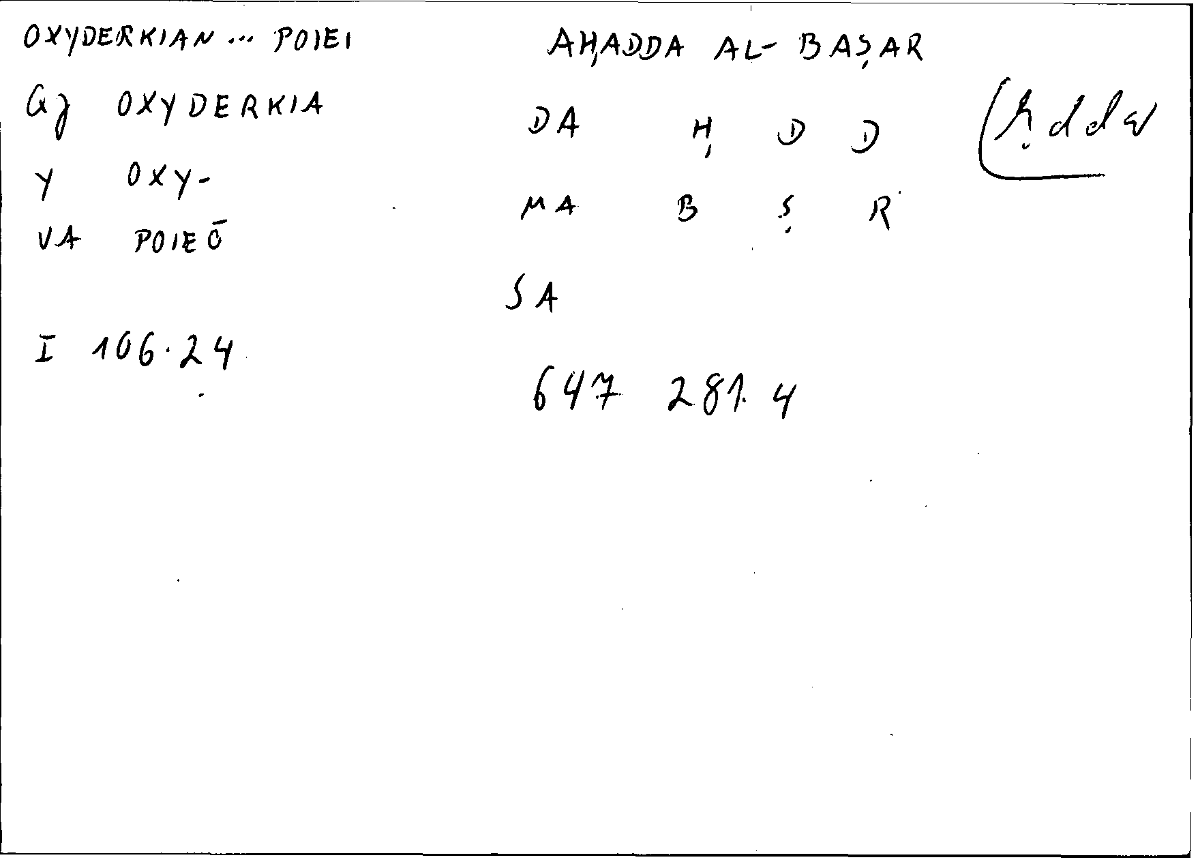 OXYDERKIAN ... POIEI
AḤADDA AL-BAṢAR
Gj OXYDERKIA
DA Ḥ D D
Y OXY-
MA B Ṣ R
VA POIEŌ
SA
I 106.24
647 281.4